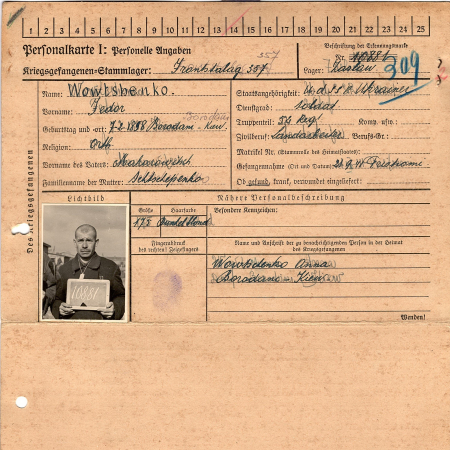 1 2 3 4 5 6 7 8 9 10 11 12 13 14 15 16 17 18 19 20 21 22 23 24 25
Personalkarte I: Personelle Angaben
Kriegsgefangenen-Stammlager: Frontstalag 357
357
Beschriftung der Erkennungsmarke
Nr. 10881
Lager:
309
Des Kriegsgefangenen
Name: Wowtshenko.
Vorname: Fedor
Geburtstag und -ort: 7.2.1898 Borodani - Kiew
Borodani
Religion: Orth
Vorname des Vaters: Makarowitsch
Familienname der Mutter:
Staatsangehörigkeit: U.d.S.S.R. Ukrainer
Dienstgrad: Soldat
Truppenteil: Regt. Komp. usw.:
Zivilberuf: Landarbeiter Berufs-Gr.:
Matrikel Nr. (Stammrolle des Heimatstaates):
Gefangennahme (Ort und Datum):
Ob gesund, krank, verwundet eingeliefert:
Lichtbild
Nähere Personalbeschreibung
Größe
Haarfarbe
Besondere Kennzeichen:
175
Dunkelblond
Fingerabdruck
des rechten! Zeigefingers
Name und Anschrift der zu benachrichtigenden Person in der Heimat
des Kriegsgefangenen
Wowtschenko Anna
Borodani - Kiew
10881
Wenden!